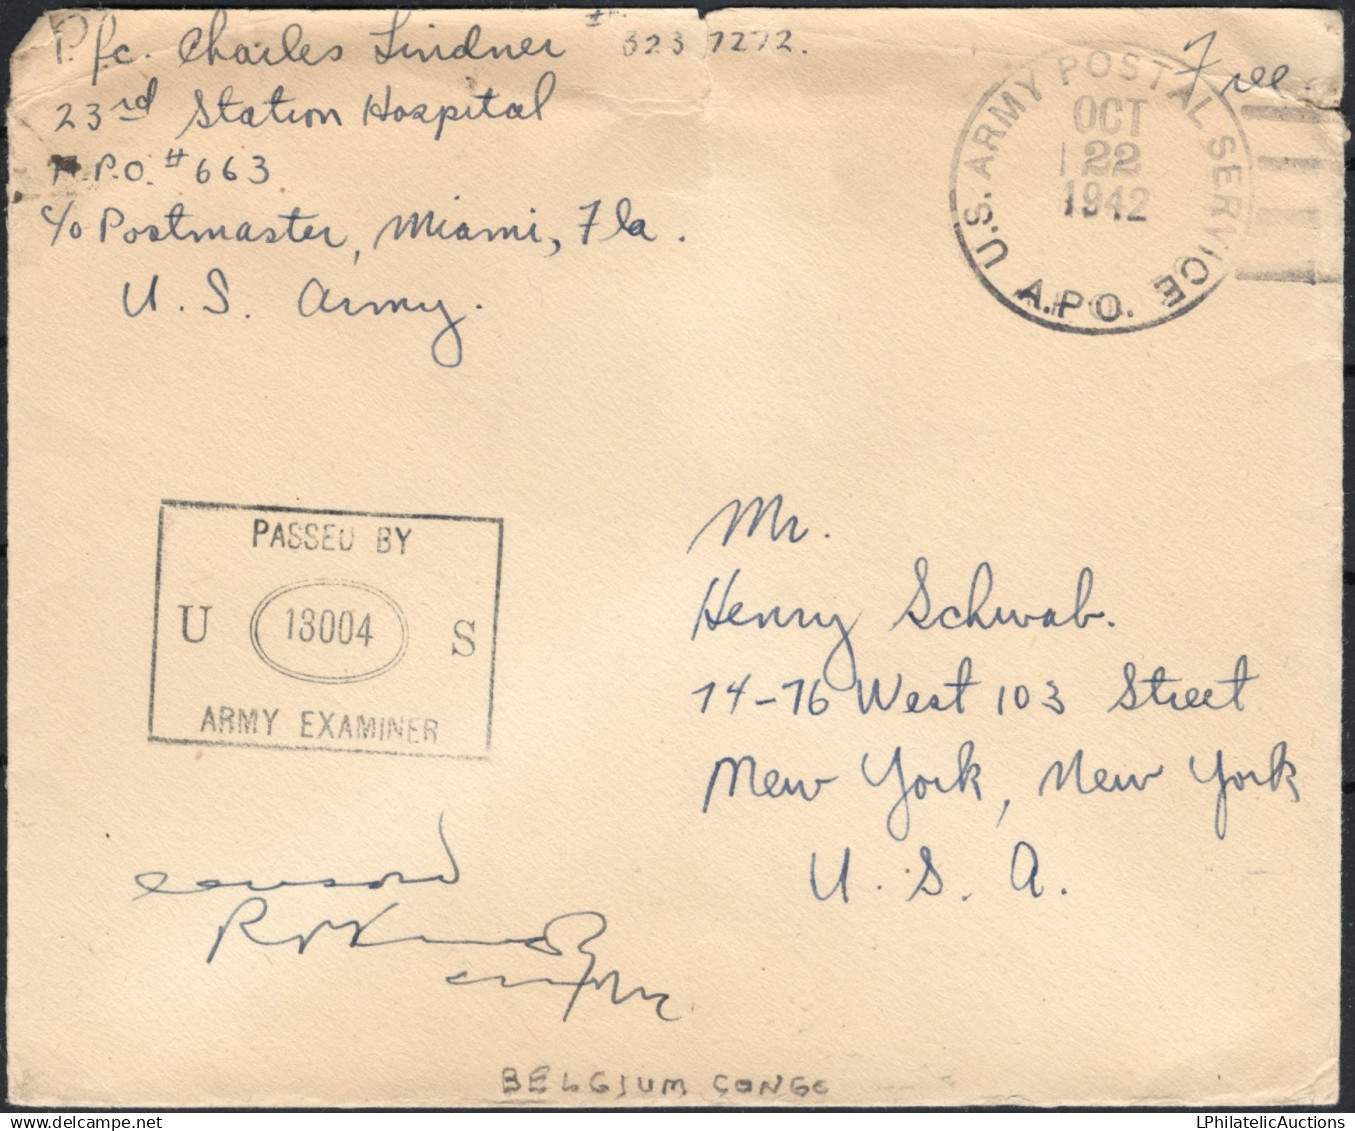 Pfc. Charles Lindner # 323 7272.
23rd Station Hospital
A.P.O. # 663
c/o Postmaster, Miami, Fla.
U. S. Army.
Free
U.S. ARMY POSTAL SERVICE
OCT
22
1942
A.P.O.
PASSED BY
U 13004 S
ARMY EXAMINER
Mr.
Henry Schwab.
74-76 West 103 Street
New York, New York
U. S. A.
censored
BELGIUM CONGO
LPhilatelicAuctions